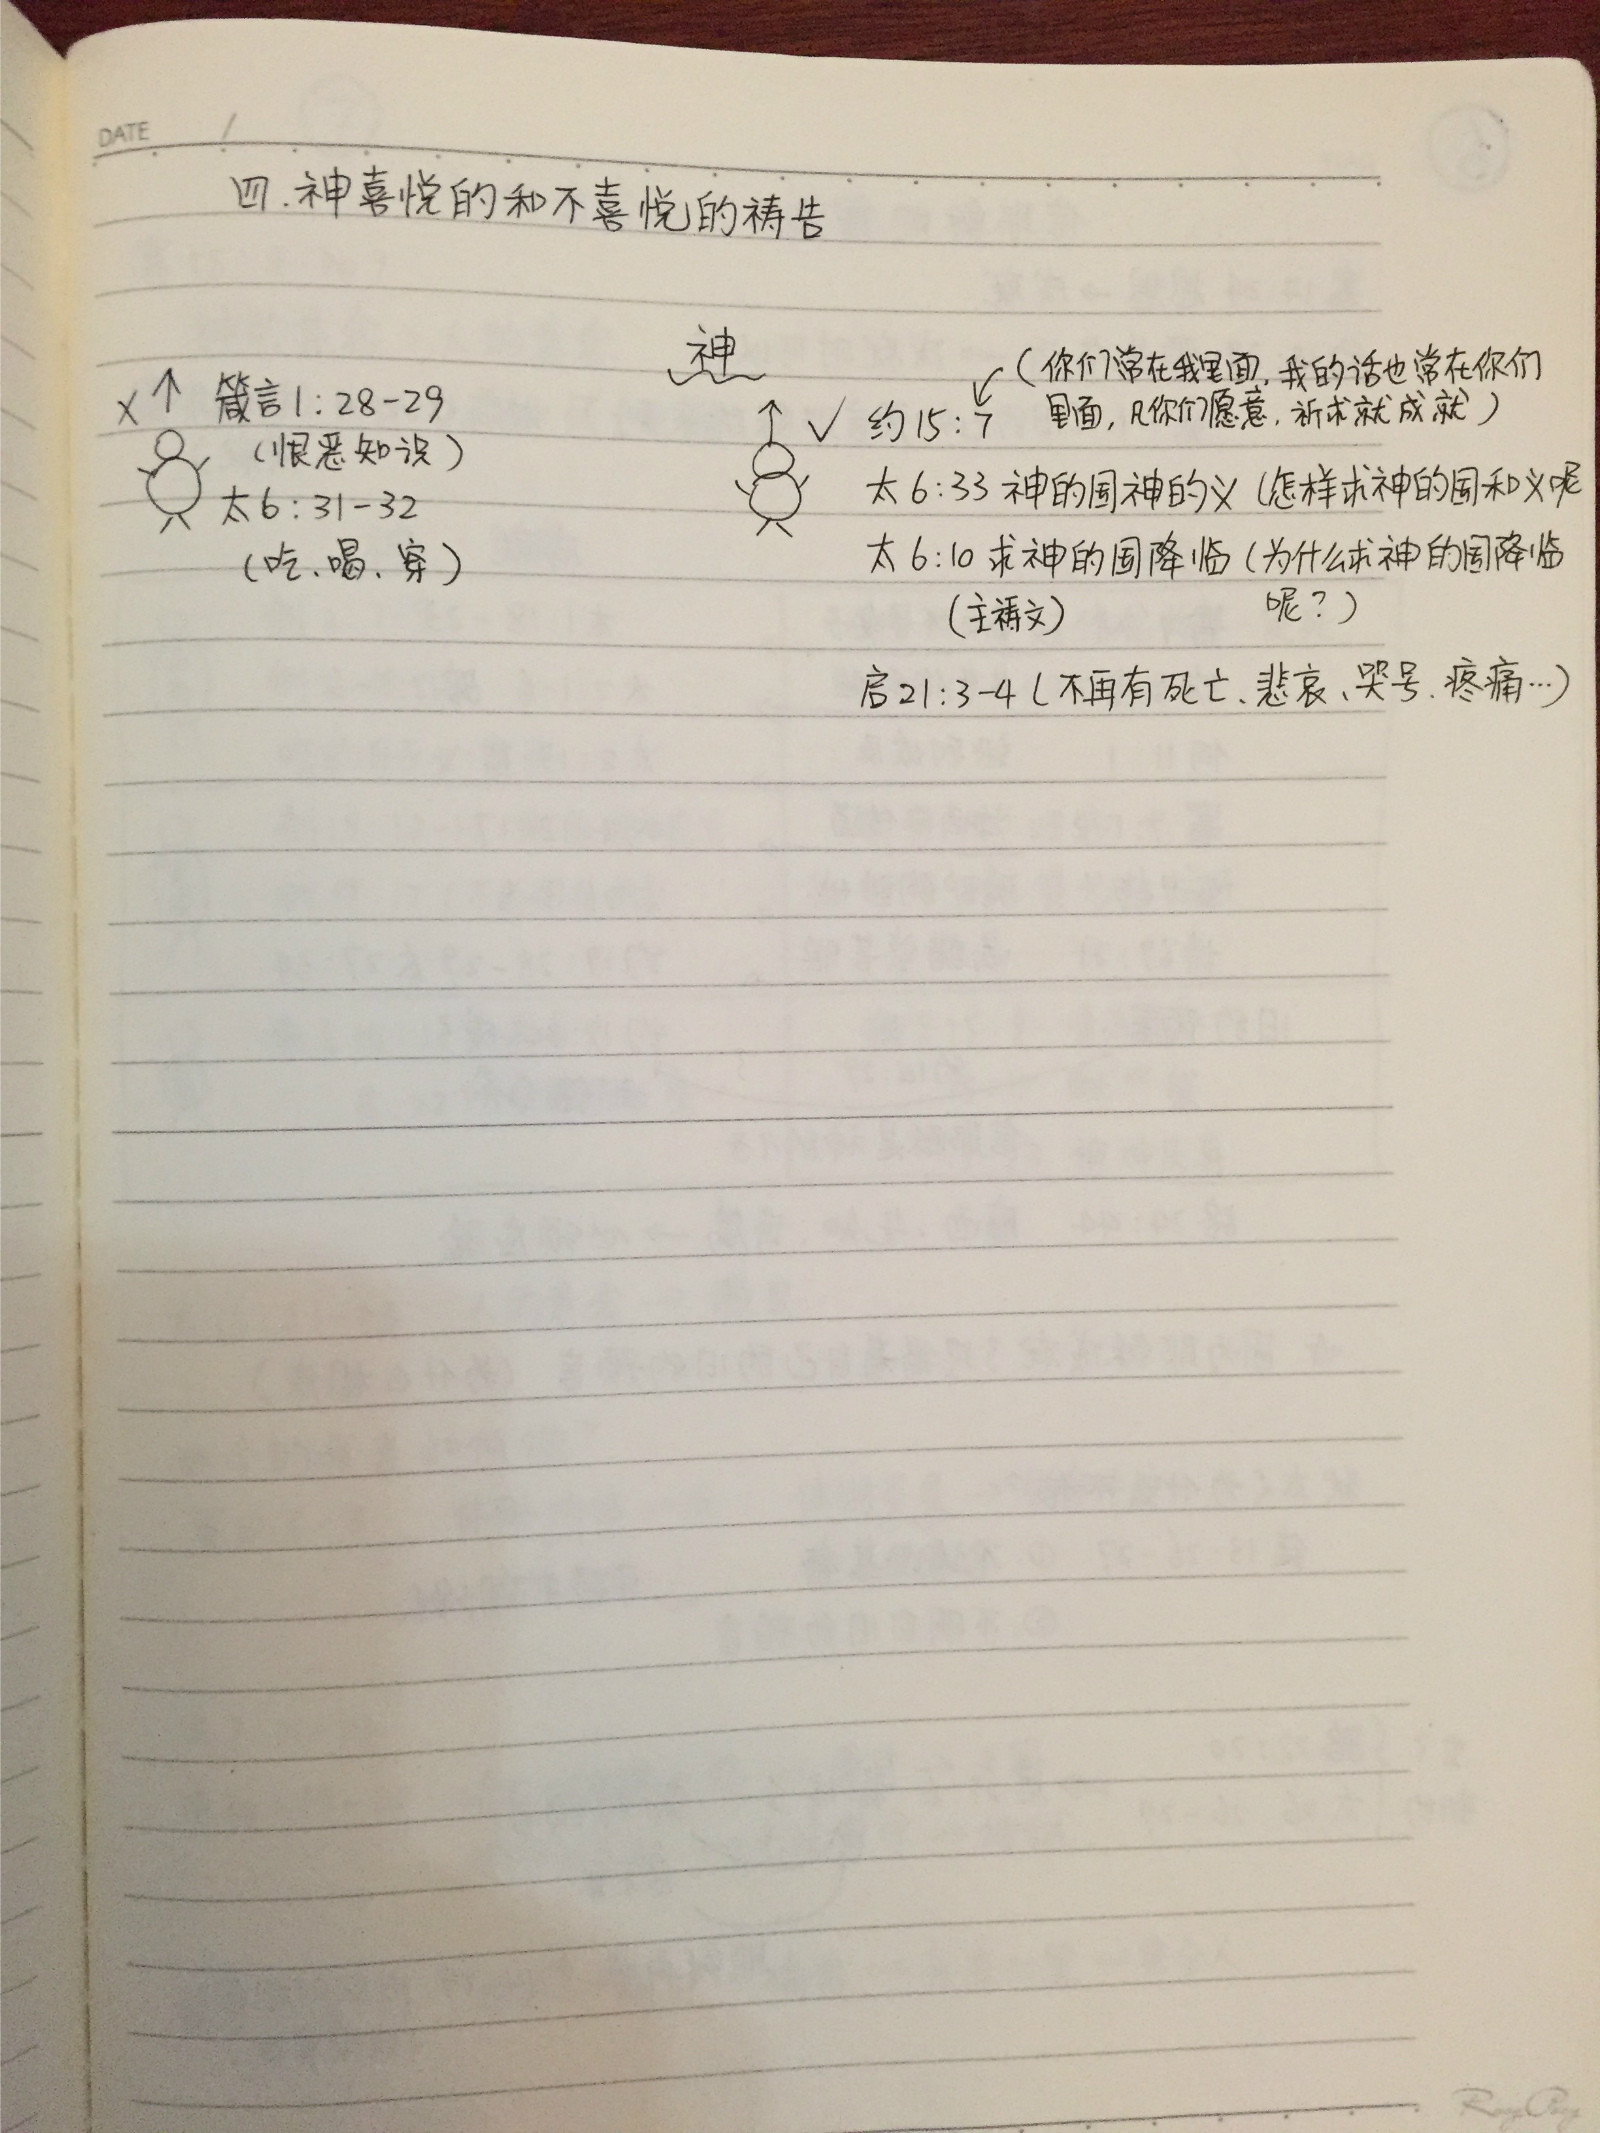 DATE /
四.神喜悦的和不喜悦的祷告
神
× ↑ 箴言1:28-29
(恨恶知识)
太6:31-32
(吃、喝、穿)
(你们常在我里面,我的话也常在你们
↑ ✓ 约15:7 里面,凡你们愿意,祈求就成就)
太6:33 神的国神的义(怎样求神的国和义呢
太6:10 求神的国降临(为什么求神的国降临
(主祷文) 呢?)
启21:3-4(不再有死亡、悲哀、哭号.疼痛…)